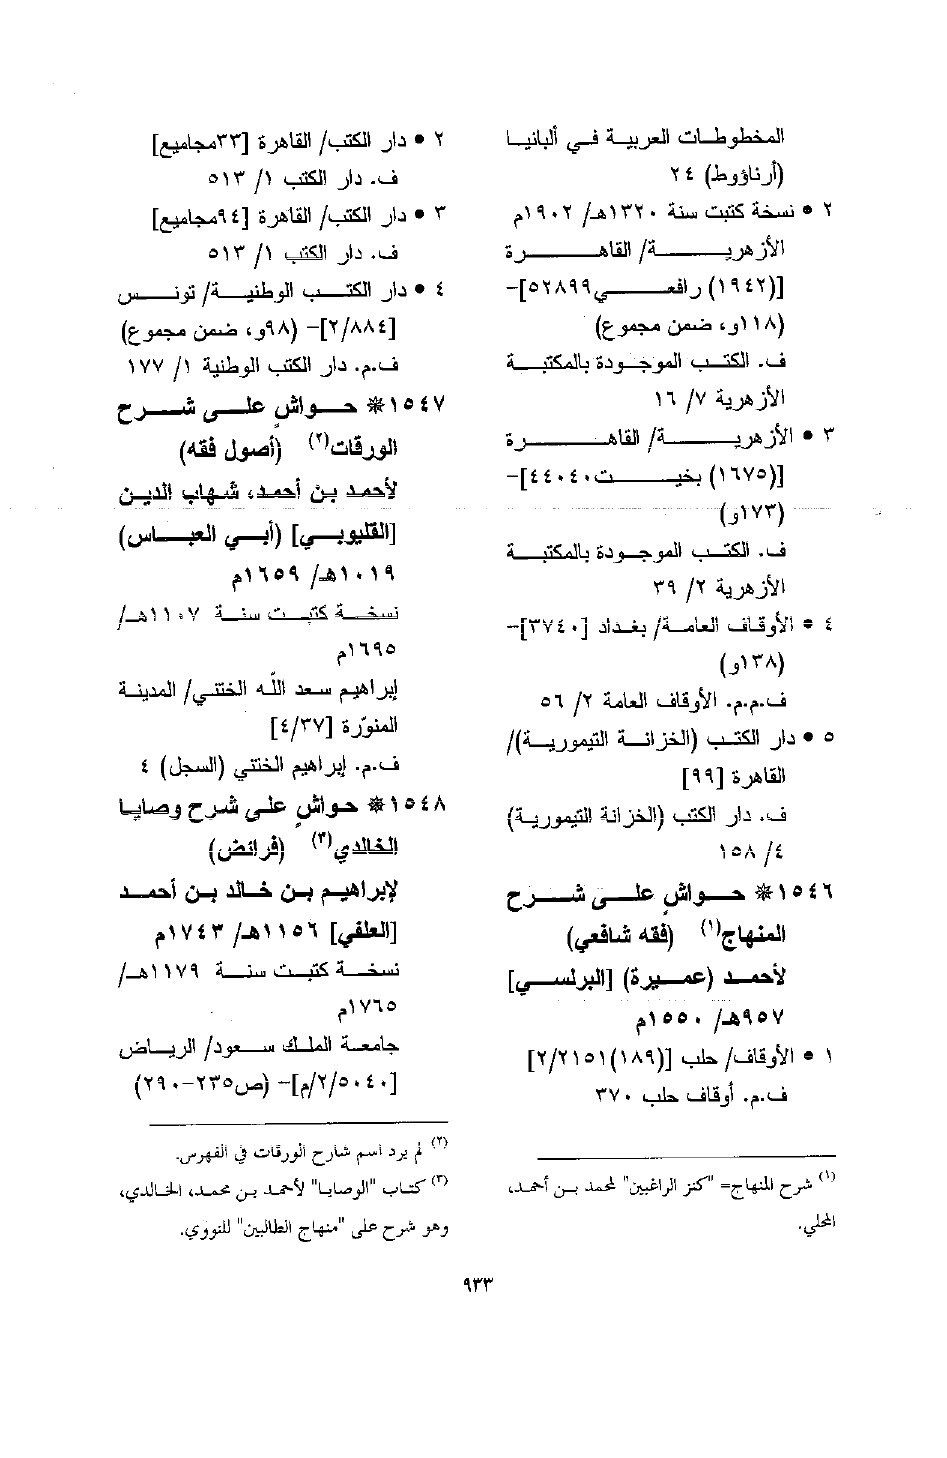 المخطوطات العربية في ألبانيا
(أرناؤوط) ٢٤
٢ • نسخة كتبت سنة ١٣٢٠هـ/ ١٩٠٢م
الأزهرية/ القاهرة
[(١٩٤٢) رافعي٥٢٨٩٩]-
(١١٨و، ضمن مجموع)
ف. الكتب الموجودة بالمكتبة
الأزهرية ٧/ ١٦
٣ • الأزهرية/ القاهرة
[(١٦٧٥) بخيت٤٤٠٤٠]-
(١٧٣و)
ف. الكتب الموجودة بالمكتبة
الأزهرية ٢/ ٣٩
٤ • الأوقاف العامة/ بغداد [٣٧٤٠]-
(١٣٨و)
ف.م.م. الأوقاف العامة ٢/ ٥٦
٥ • دار الكتب (الخزانة التيمورية)/
القاهرة [٩٩]
ف. دار الكتب (الخزانة التيمورية)
٤/ ١٥٨
١٥٤٦* حواشٍ على شرح
المنهاج(١) (فقه شافعي)
لأحمد (عميرة) [البرلسي]
٩٥٧هـ/ ١٥٥٠م
١ • الأوقاف/ حلب [(١٨٩)٢/٢١٥١]
ف.م. أوقاف حلب ٣٧٠
(١) شرح المنهاج= "كنز الراغبين" لمحمد بن أحمد،
المحلي.
٢ • دار الكتب/ القاهرة [٣٣مجاميع]
ف. دار الكتب ١/ ٥١٣
٣ • دار الكتب/ القاهرة [٩٤مجاميع]
ف. دار الكتب ١/ ٥١٣
٤ • دار الكتب الوطنية/ تونس
[٢/٨٨٤]- (٩٨و، ضمن مجموع)
ف.م. دار الكتب الوطنية ١/ ١٧٧
١٥٤٧* حواشٍ على شرح
الورقات(٢) (أصول فقه)
لأحمد بن أحمد، شهاب الدين
[القليوبي] (أبي العباس)
١٠١٩هـ/ ١٦٥٩م
نسخة كتبت سنة ١١٠٧هـ/
١٦٩٥م
إبراهيم سعد اللّه الختني/ المدينة
المنوّرة [٤/٣٧]
ف.م. إبراهيم الختني (السجل) ٤
١٥٤٨* حواشٍ على شرح وصايا
الخالدي(٣) (فرائض)
لإبراهيم بن خالد بن أحمد
[العلفي] ١١٥٦هـ/ ١٧٤٣م
نسخة كتبت سنة ١١٧٩هـ/
١٧٦٥م
جامعة الملك سعود/ الرياض
[٢/٥٠٤٠/م]- (ص٢٣٥-٢٩٠)
(٢) لم يرد اسم شارح الورقات في الفهرس.
(٣) كتاب "الوصايا" لأحمد بن محمد، الخالدي،
وهو شرح على "منهاج الطالبين" للنووي.
٩٣٣